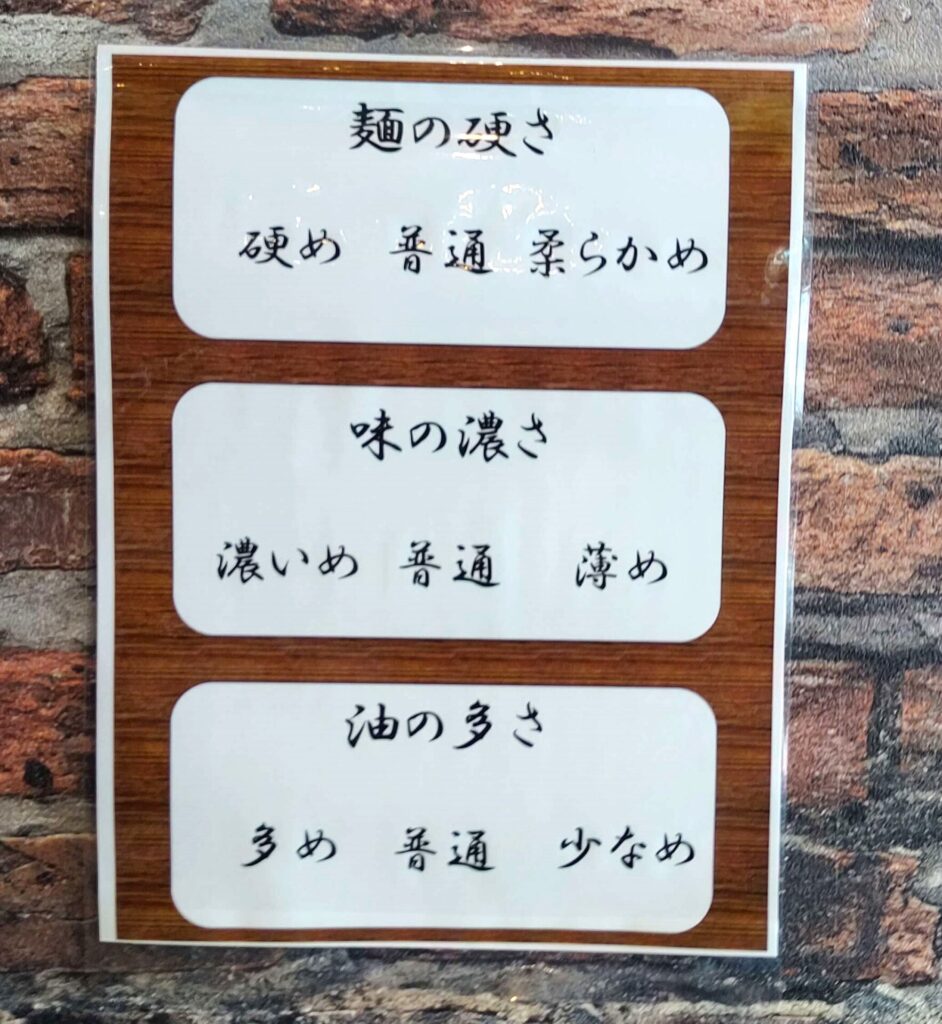 麺の硬さ
硬め 普通 柔らかめ
味の濃さ
濃いめ 普通 薄め
油の多さ
多め 普通 少なめ